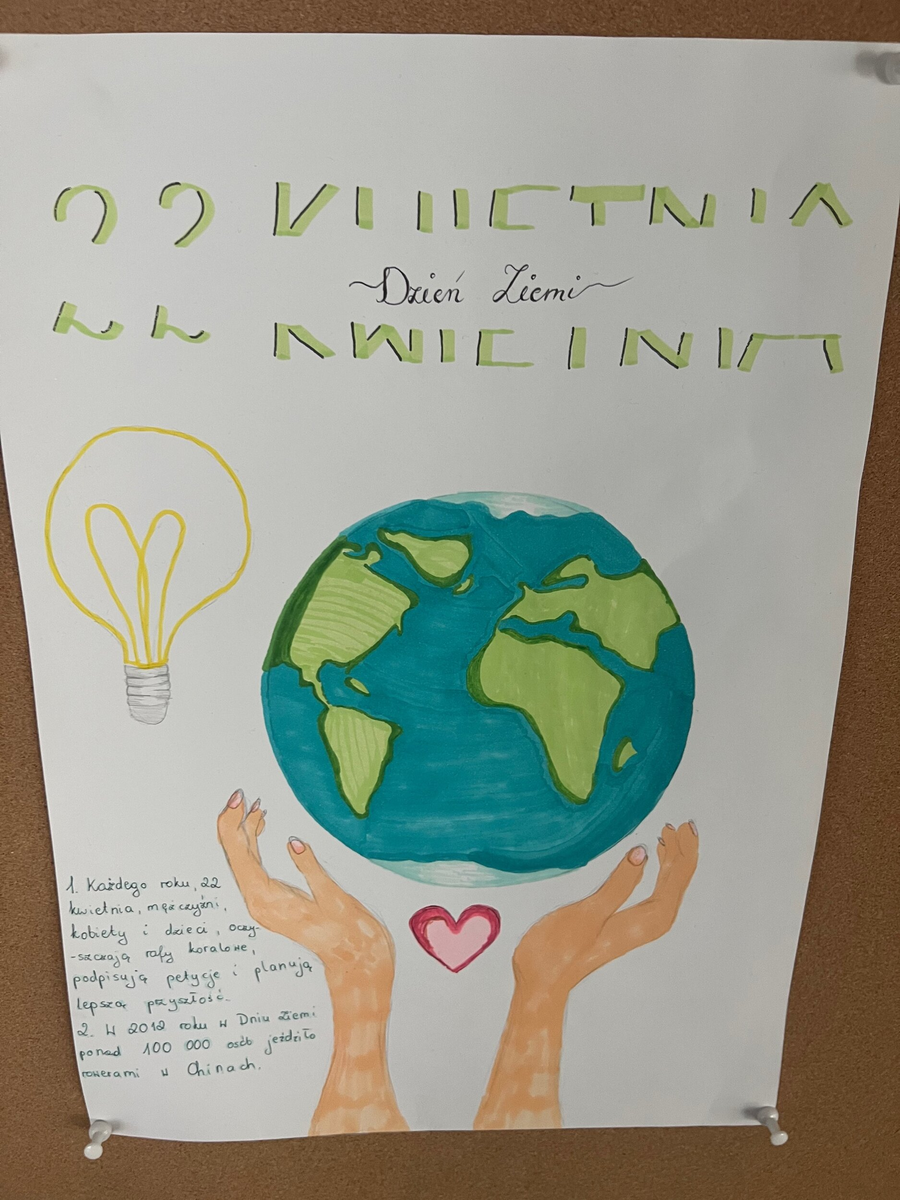 22 KWIETNIA
~Dzień Ziemi~
1. Każdego roku, 22
kwietnia, mężczyźni,
kobiety i dzieci, oczy-
-szczają rafy koralowe,
podpisują petycje i planują
lepszą przyszłość.
2. W 2012 roku w Dniu Ziemi
ponad 100 000 osób jeździło
rowerami w Chinach.